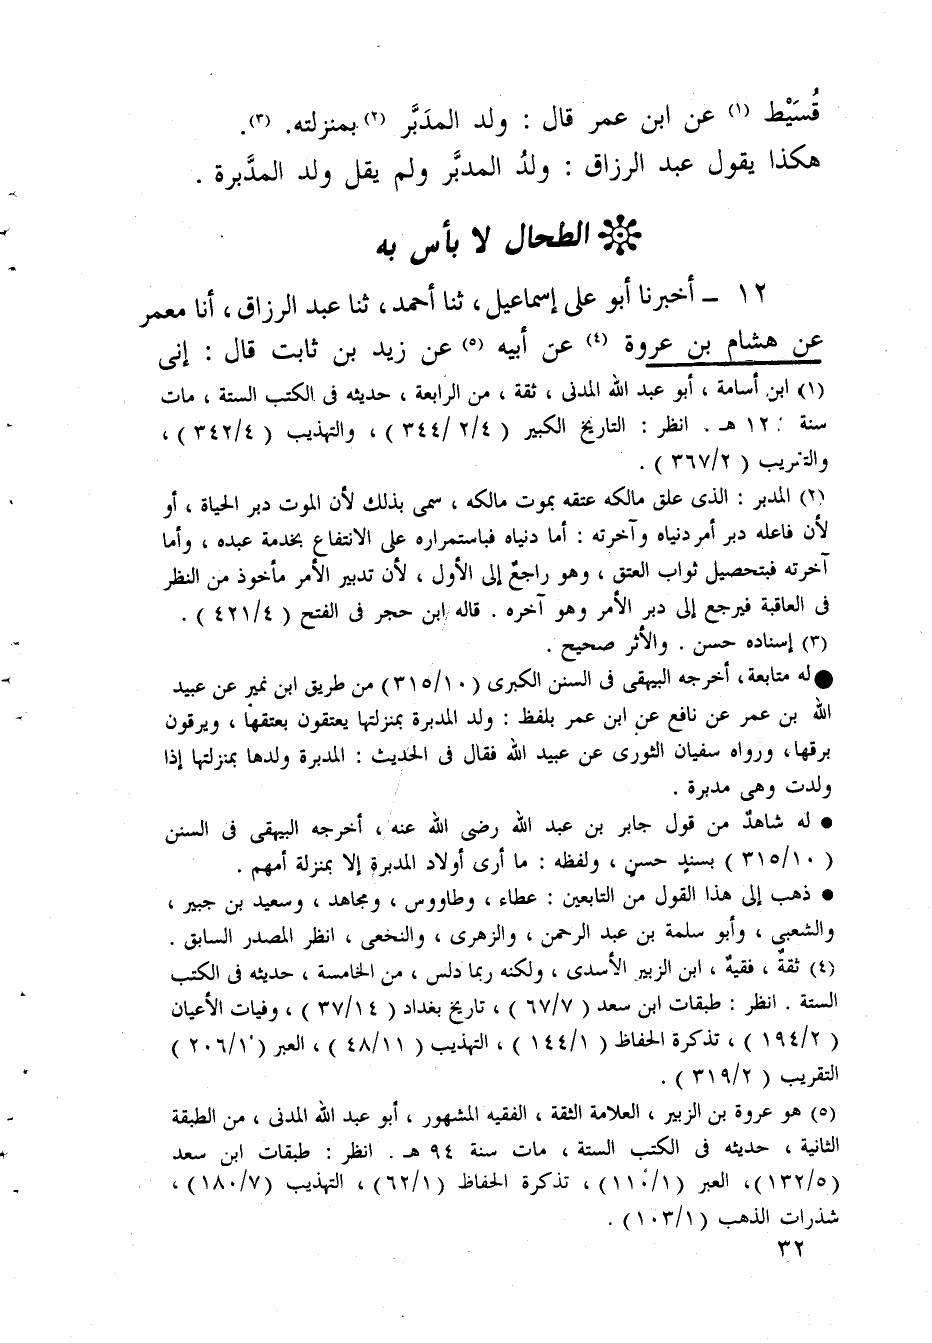 قُسَيْط (١) عن ابن عمر قال : ولد المدَبَّر (٢) بمنزلته. (٣).
هكذا يقول عبد الرزاق : ولدُ المدبَّر ولم يقل ولد المدَّبرة .
الطحال لا بأس به
١٢ ـ أخبرنا أبو على إسماعيل ، ثنا أحمد ، ثنا عبد الرزاق ، أنا معمر
عن هشام بن عروة (٤) عن أبيه (٥) عن زيد بن ثابت قال : إنى
(١) ابن أسامة ، أبو عبد الله المدنى ، ثقة ، من الرابعة ، حديثه فى الكتب الستة ، مات
سنة ١٢ هـ . انظر : التاريخ الكبير ( ٣٤٤/٢/٤ ) ، والتهذيب ( ٣٤٢/٤ ) ،
والتقريب ( ٣٦٧/٢ ) .
(٢) المدبر : الذى علق مالكه عتقه بموت مالكه ، سمى بذلك لأن الموت دبر الحياة ، أو
لأن فاعله دبر أمر دنياه وآخرته : أما دنياه فباستمراره على الانتفاع بخدمة عبده ، وأما
آخرته فبتحصيل ثواب العتق ، وهو راجعٌ إلى الأول ، لأن تدبير الأمر مأخوذ من النظر
فى العاقبة فيرجع إلى دبر الأمر وهو آخره . قاله ابن حجر فى الفتح ( ٤٢١/٤ ) .
(٣) إسناده حسن . والأثر صحيح .
● له متابعة ، أخرجه البيهقى فى السنن الكبرى (٣١٥/١٠) من طريق ابن نمير عن عبيد
الله بن عمر عن نافع عن ابن عمر بلفظ : ولد المدبرة بمنزلتها يعتقون بعتقها ، ويرقون
برقها ، ورواه سفيان الثورى عن عبيد الله فقال فى الحديث : المدبرة ولدها بمنزلتها إذا
ولدت وهى مدبرة .
● له شاهدٌ من قول جابر بن عبد الله رضى الله عنه ، أخرجه البيهقى فى السنن
( ٣١٥/١٠ ) بسندٍ حسنٍ ، ولفظه : ما أرى أولاد المدبرة إلا بمنزلة أمهم .
● ذهب إلى هذا القول من التابعين : عطاء ، وطاووس ، ومجاهد ، وسعيد بن جبير ،
والشعبى ، وأبو سلمة بن عبد الرحمن ، والزهرى ، والنخعى ، انظر المصدر السابق .
(٤) ثقةٌ ، فقيهٌ ، ابن الزبير الأسدى ، ولكنه ربما دلس ، من الخامسة ، حديثه فى الكتب
الستة . انظر : طبقات ابن سعد ( ٦٧/٧ ) ، تاريخ بغداد ( ٣٧/١٤ ) ، وفيات الأعيان
( ١٩٤/٢ ) ، تذكرة الحفاظ ( ١٤٤/١ ) ، التهذيب ( ٤٨/١١ ) ، العبر ( ٢٠٦/١ )
التقريب ( ٣١٩/٢ ) .
(٥) هو عروة بن الزبير ، العلامة الثقة ، الفقيه المشهور ، أبو عبد الله المدنى ، من الطبقة
الثانية ، حديثه فى الكتب الستة ، مات سنة ٩٤ هـ . انظر : طبقات ابن سعد
(١٣٢/٥) ، العبر (١١٠/١) ، تذكرة الحفاظ (٦٢/١) ، التهذيب (١٨٠/٧) ،
شذرات الذهب (١٠٣/١) .
٣٢